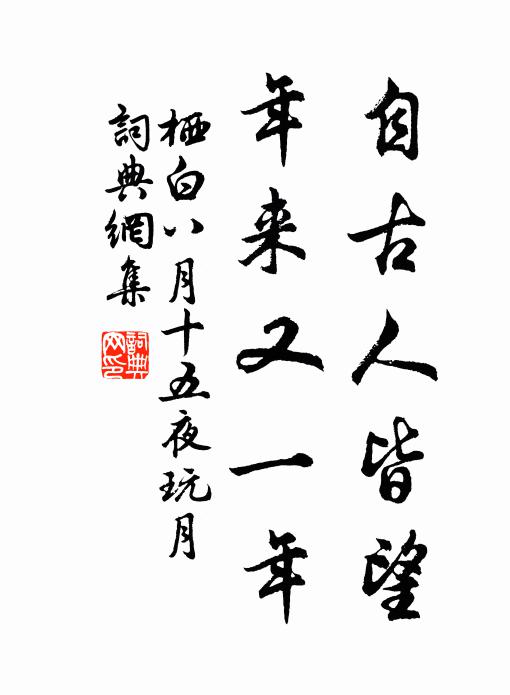 自古人皆望
年来又一年
栖白八月十五夜玩月
詞典網集
詞典
网印